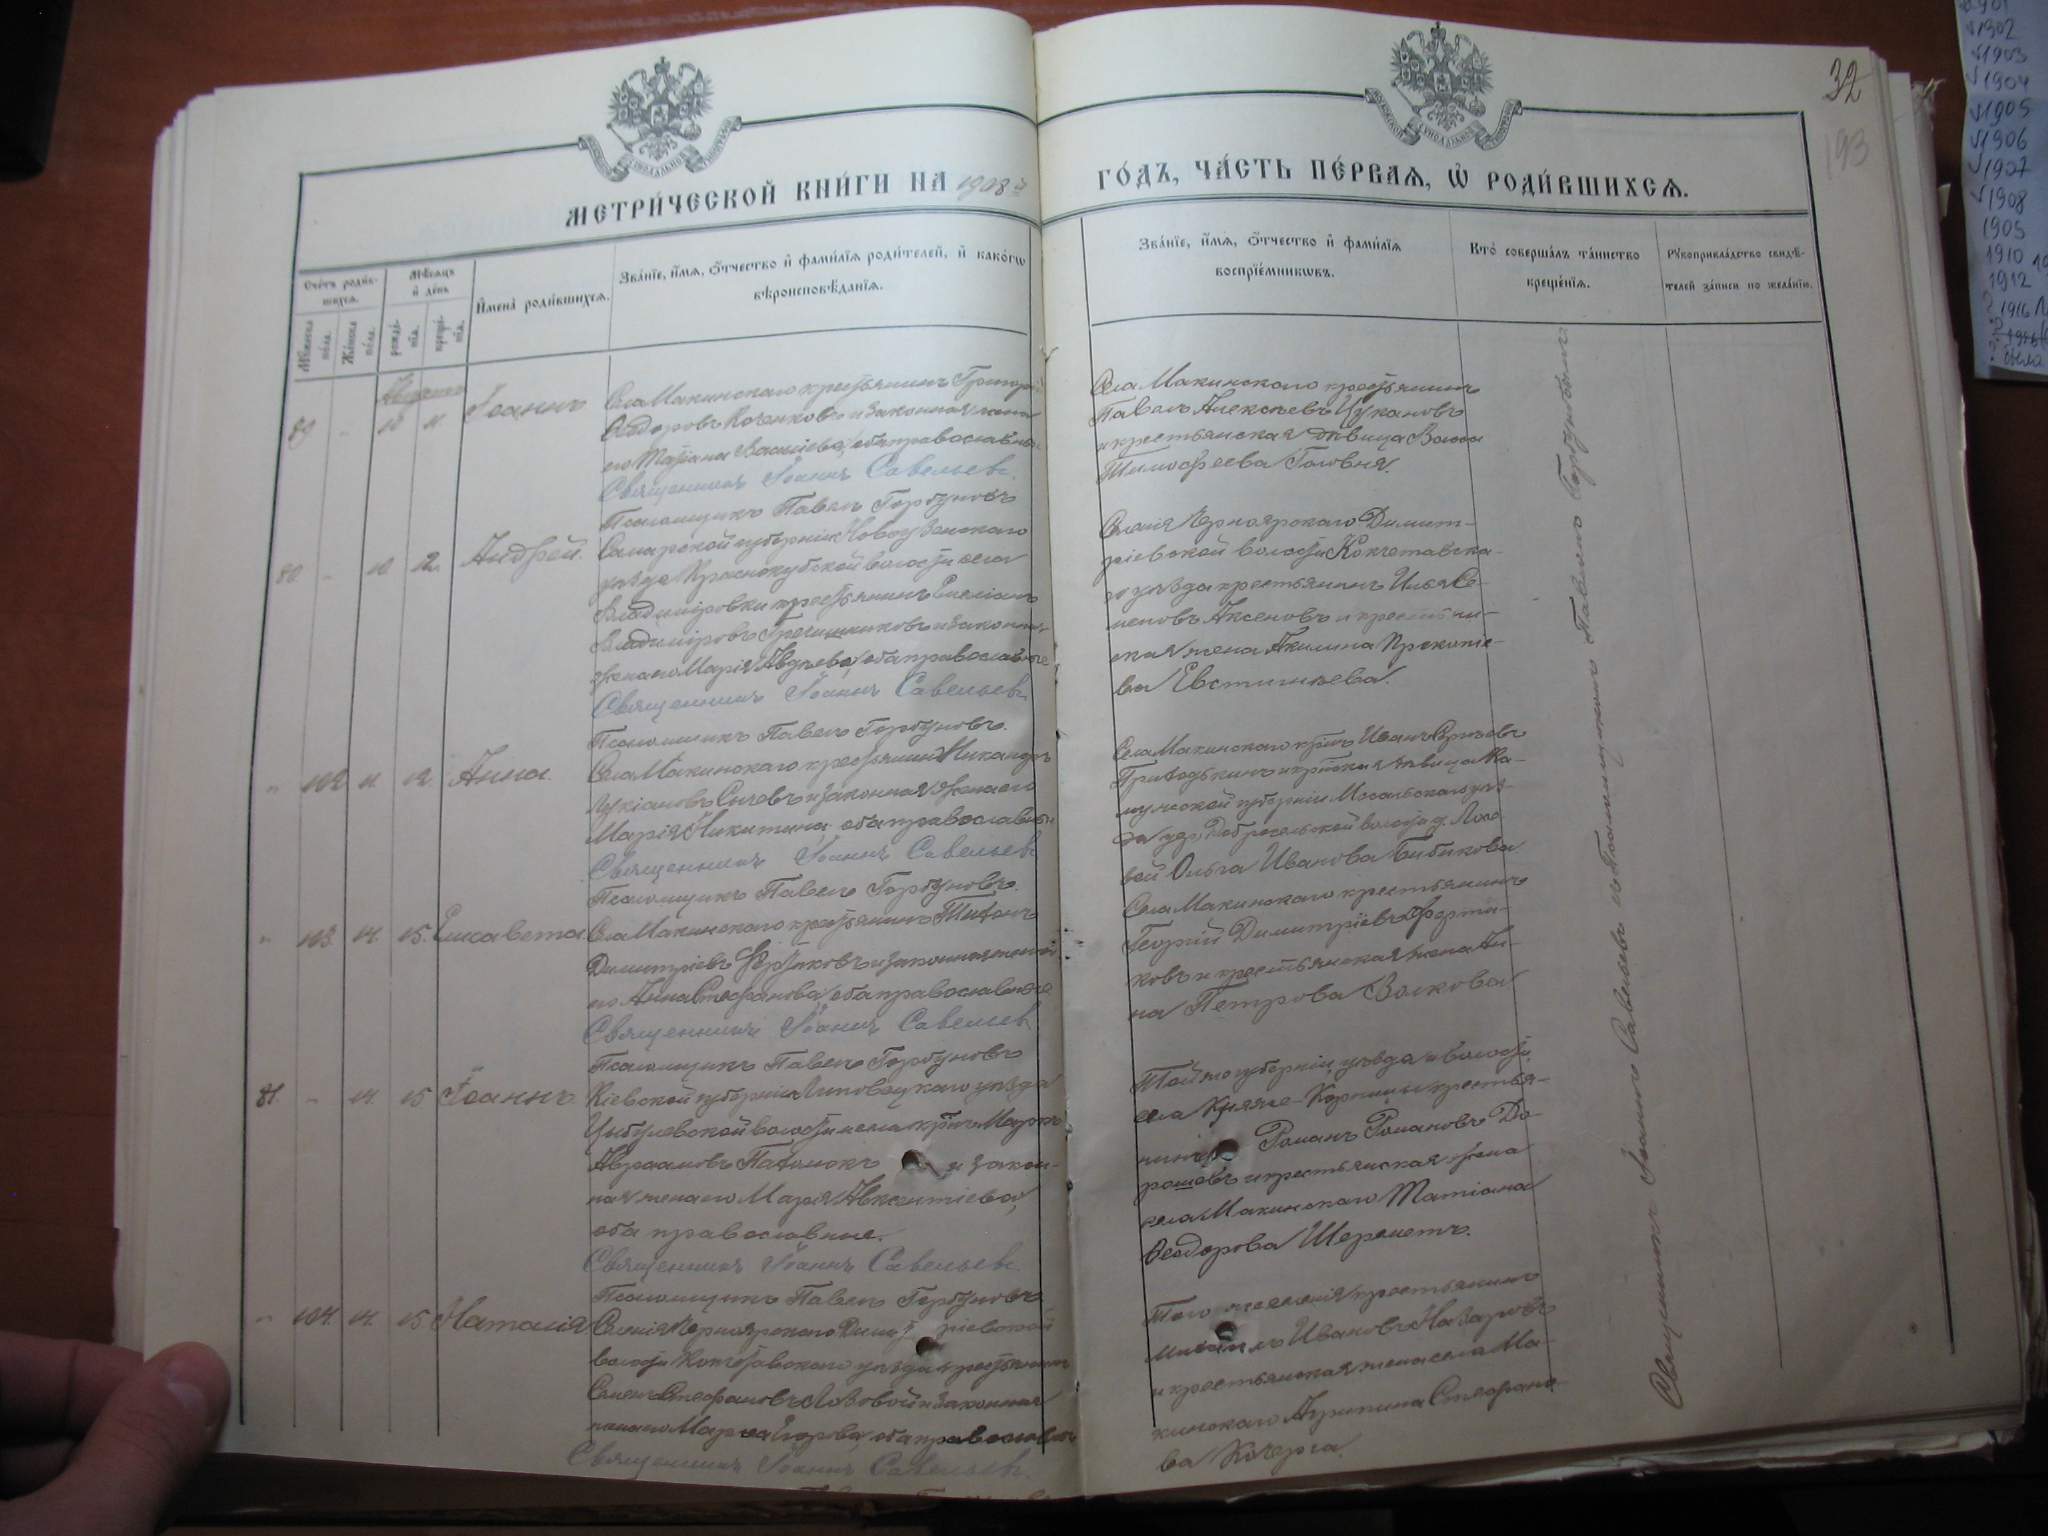 32
193
МЕТРИ́ЧЕСКОЙ КНИ́ГИ НА 1908 й
ГО́ДЪ, ЧА́СТЬ ПЕ́РВАѦ, Ѡ҆ РОДИ́ВШИХСѦ.
Сче́тъ роди́в-
шихсѧ.
Мѣ́сѧцъ
и҆ де́нь
Мꙋ́жеска
по́ла.
Же́нска
по́ла.
рожде́-
нїѧ.
креще́-
нїѧ.
И҆мена̀ роди́вшихсѧ.
Зва́нїе, и҆́мѧ, ѻ҆́тчество и҆ фами́лїѧ роди́телей, и҆ како́гѡ
вѣроисповѣ́данїѧ.
Зва́нїе, и҆́мѧ, ѻ҆́тчество и҆ фами́лїѧ
воспрїе́мникѡвъ.
Кто̀ соверша́лъ та́инство
креще́нїѧ.
Рꙋкоприкла́дство свидѣ́-
телей за́писи по жела́нїю.
Августъ
10 11 Іоаннъ
Села Макинскаго крестьянинъ Григорій
Ѳеодоровъ и законная жена
его Татіана Василіева, оба православные
Священникъ Іоаннъ Савельевъ
Псаломщикъ Павелъ Горбуновъ
Села Макинскаго крестьянинъ
Павелъ Алексѣевъ Цукановъ
и крестьянская дѣвица
Тимофеева Головня
80 - 10 12. Андрей.
Самарской губерніи Новоузенскаго
уѣзда Краснокутской волости села
Владиміровки крестьянинъ Емеліанъ
Владиміровъ и законная
жена его Марія Авдѣева, оба православные
Священникъ Іоаннъ Савельевъ
Псаломщикъ Павелъ Горбуновъ.
Селенія Черноярскаго Димит-
ріевской волости Кокчетавска-
го уѣзда крестьянинъ Илья Се-
меновъ Аксеновъ и крестьян-
ская жена Акилина Прокопіе-
ва Евстигнѣева.
" 102 11 12. Анна.
Села Макинскаго крестьянинъ Никандръ
Лукіановъ Сычевъ и законная жена его
Марія Никитина, оба православные
Священникъ Іоаннъ Савельевъ
Псаломщикъ Павелъ Горбуновъ.
Села Макинскаго кр-нъ Иванъ
и кр-ская дѣвица Ка-
лужской губерніи Мосальскаго уѣз-
да Добросельской волости д.
Ольга Иванова Бибикова
" 103. 14. 15. Елисавета
Села Макинскаго крестьянинъ Тихонъ
Димитріевъ и законная жена
его Анна Стефанова, оба православные
Священникъ Іоаннъ Савельевъ
Псаломщикъ Павелъ Горбуновъ
Села Макинскаго крестьянинъ
Георгій Димитріевъ
ковъ и крестьянская жена Ан-
на Петрова Волкова
81. - 14. 15 Іоаннъ
Кіевской губерніи Липовецкаго уѣзда
Цыбулевской волости и села кр-нъ Маркъ
Авраамовъ и закон-
ная жена его Марія Авксентіева,
оба православные.
Священникъ Іоаннъ Савельевъ.
Псаломщикъ Павелъ Горбуновъ
Той же губерніи, уѣзда и волости
села Княже-Корницы крестья-
нинъ Романъ Романовъ До-
рошевъ и крестьянская жена
села Макинскаго Татіана
Ѳеодорова Шереметъ.
" 104. 14. 15. Наталія
Селенія Черноярскаго Димитріевской
волости Кокчетавскаго уѣзда крестьянинъ
Семенъ Стефановъ Лозовой и законная
жена его Марѳа Егорова, оба православные
Священникъ Іоаннъ Савельевъ.
Того же селенія крестьянинъ
Михаилъ Ивановъ Назаровъ
и крестьянская жена села Ма-
кинскаго Агрипина Стефано-
ва Кочерга.
Священникъ Іоаннъ Савельевъ и Псаломщикъ Павелъ Горбуновъ
1902
1903
1904
1905
1906
1907
1908
1905
1910
1912
1916
было